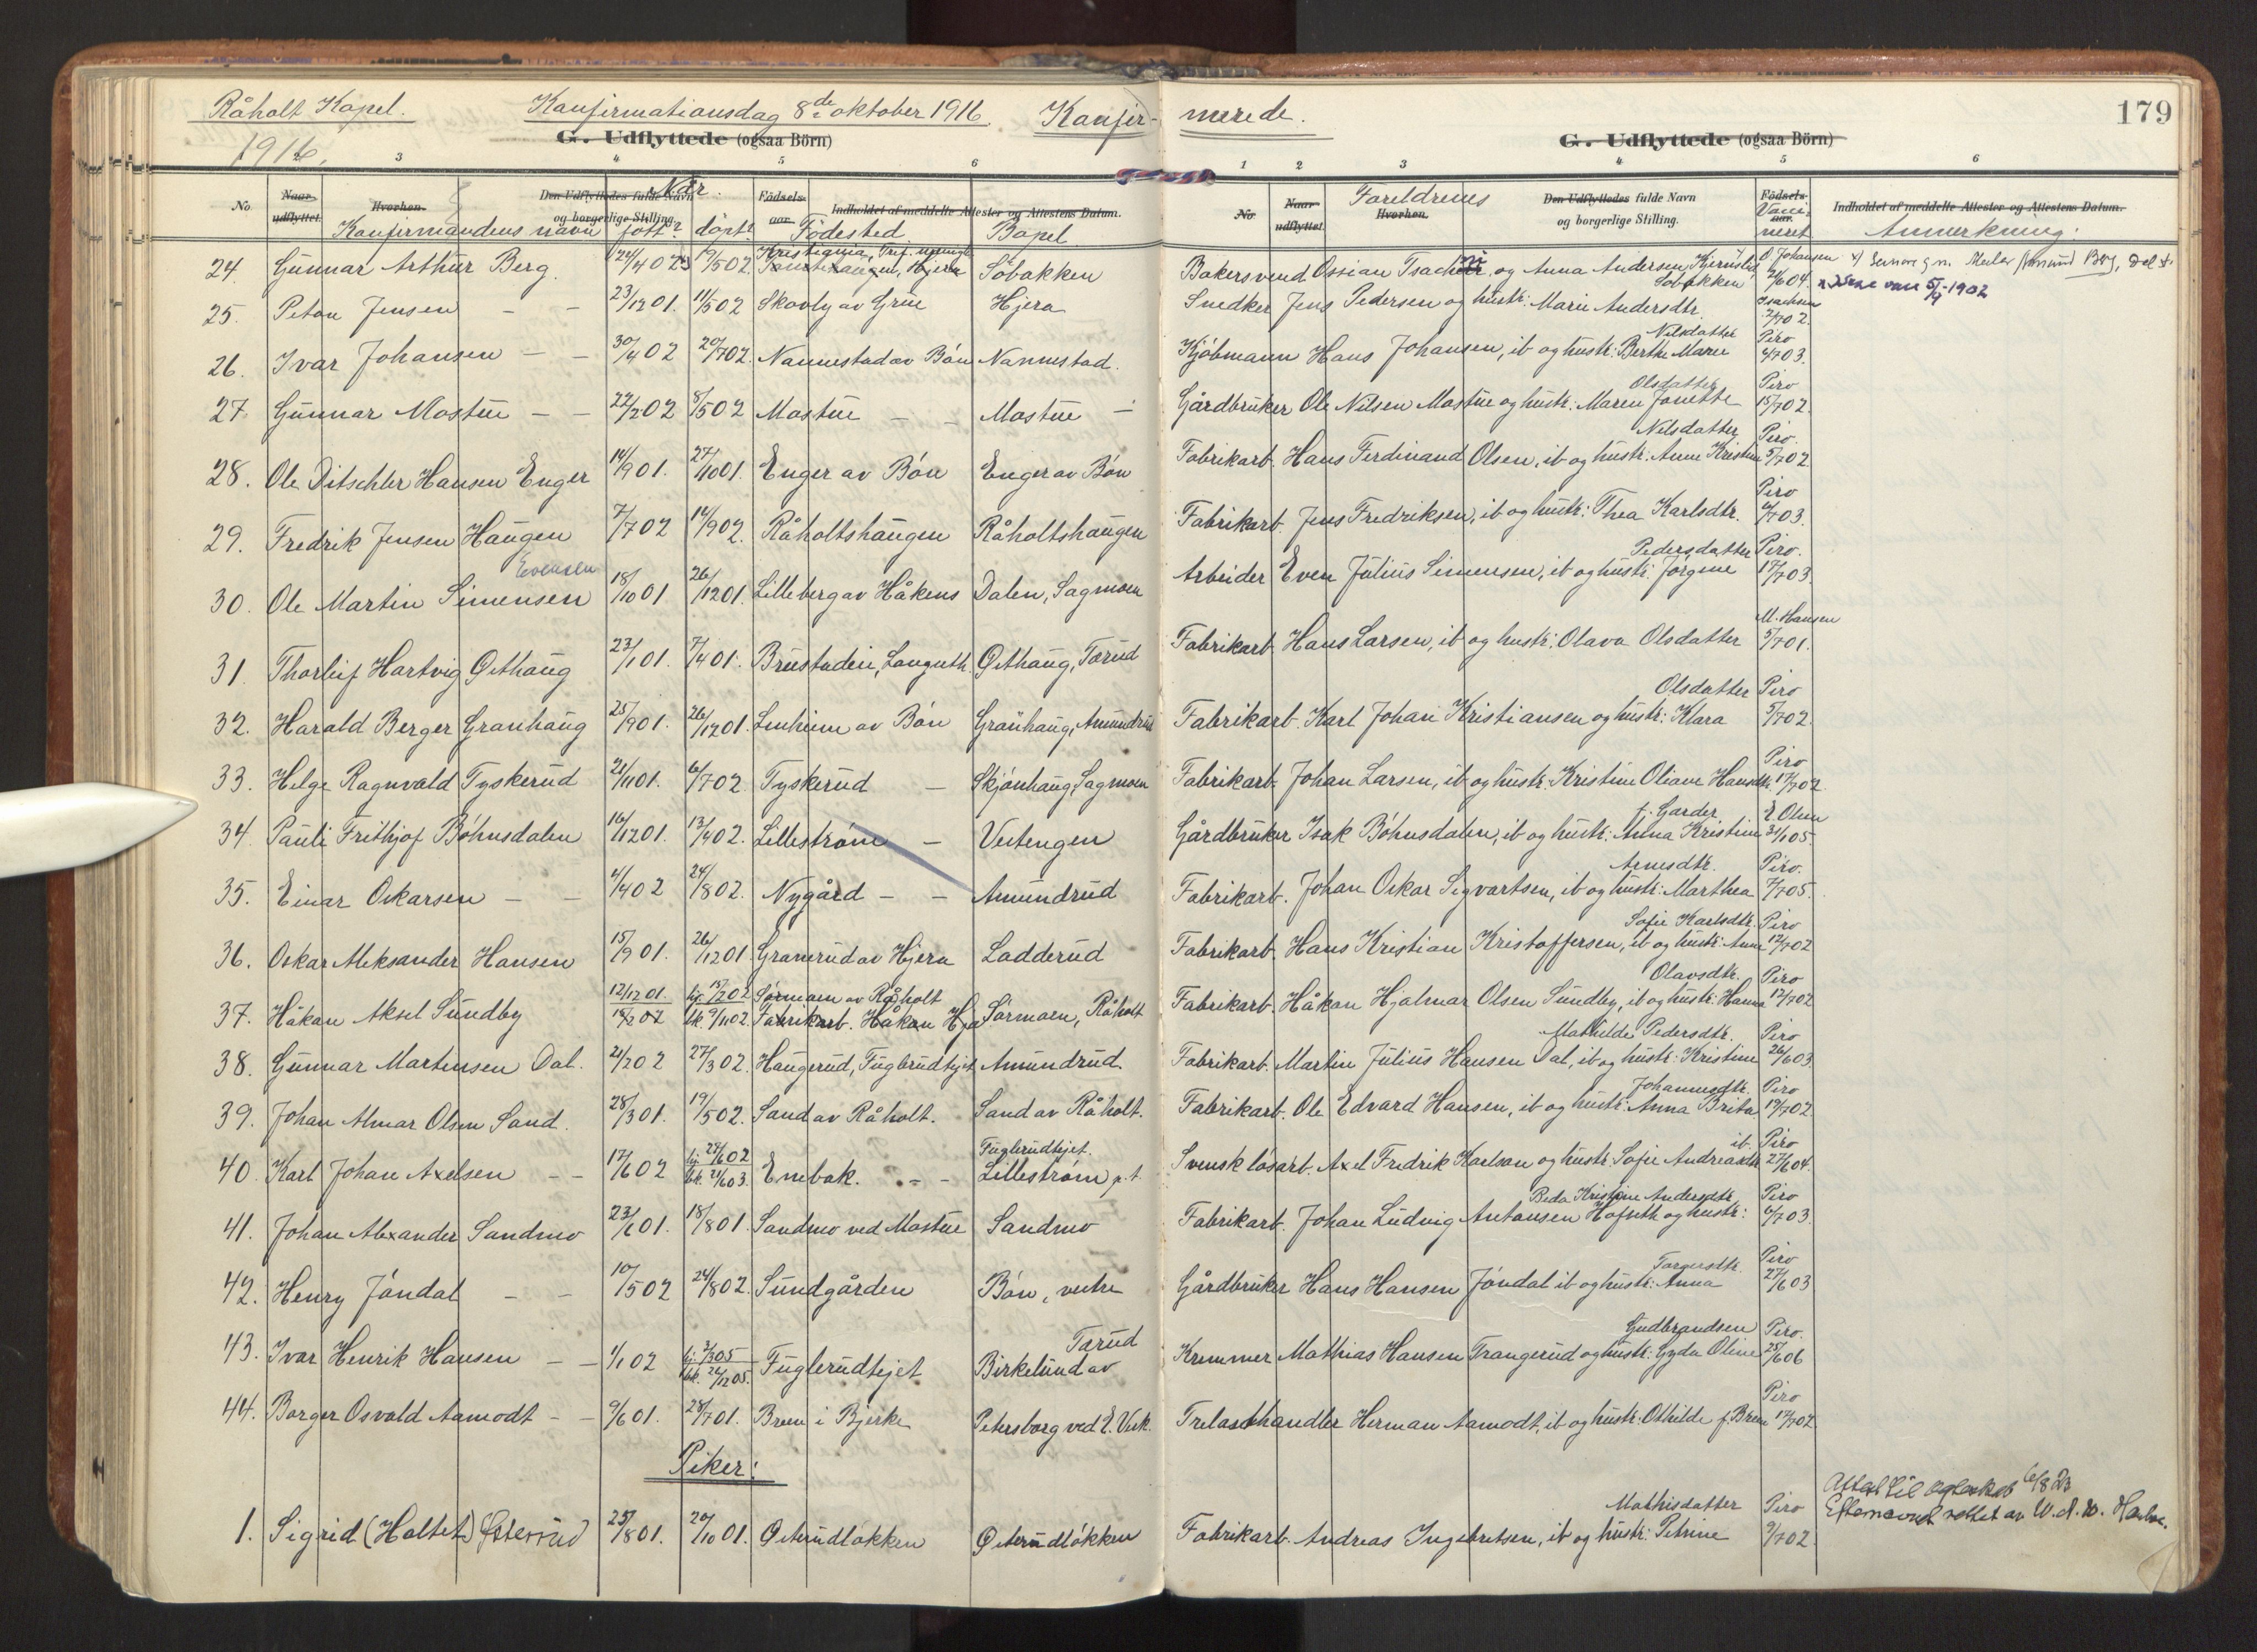 Råholt Kapel. Konfirmationsdag 8de oktober 1916. Konfir- merede. 179
1916.
G. Udflyttede (ogsaa Börn) G. Udflyttede (ogsaa Börn)
3 4 5 6 1 2 3 4 5 6
No Naar udflyttet Hvorhen Den Udflyttedes fulde Navn og borgerlige Stilling. Födsels-aar Indholdet af meddelte Attester og Attestens Datum. No Naar udflyttet Hvorhen Den Udflyttedes fulde Navn og borgerlige Stilling. Födsels-aar Indholdet af meddelte Attester og Attestens Datum.
Konfirmandens navn Når født? døpt? Födested Bopel Foreldrenes Vaccineret Anmerkning:
24. Gunnar Arthur Berg 19/502 Kristiania, Søbakken Bakersvend Ossian og Anna Andersen, Søbakken O. Johansen 21/604.
25. Peton Jensen - - 23/1201. 11/502 Skovly av Grue Hjera Snedker Jens Pedersen og hustr: Marie Andersdtr. Isachsen 2/702.
26. Ivar Johansen - - 30/402 20/702. Nannestad av Bön Nannestad. Kjöbmann Hans Johansen, ib og hustr: Berthe Marie Nilsdatter Piro 4/703.
27. Gunnar Mostue - - 22/202 8/502 Mostue - - Mostue - Gårdbruker Ole Nilsen Mostue og hustr: Maren Jonette Olsdatter Piro 15/702.
28. Ole Ditschler Hansen Enger 14/901. 27/1001. Enger av Bön Enger av Bön Fabrikarb. Hans Ferdinand Olsen, ib og hustr: Anne Kristine Nilsdatter Piro. 5/702
29. Fredrik Jensen Haugen 7/702 14/902. Råholtshaugen Råholtshaugen Fabrikarb. Jens Fredriksen, ib og hustr: Thea Karlsdtr. Piro 6/703.
30. Ole Martin Simensen Evensen 18/1001 26/1201. Lilleberg av Håkens Dalen, Sagmoen Arbeider Even Julius Simensen, ib og hustr: Jørgine Pedersdatter Piro. 17/703.
31. Thorleif Hartvig Østhaug 23/101. 7/401. Brustadeie, Langseth. Østhaug, Tærud Fabrikarb. Hans Larsen, ib og hustr: Olava Olsdatter M. Hansen 5/701.
32. Harald Berger Granhaug 25/901. 26/1201. av Bön Granhaug, Amundrud Fabrikarb. Karl Johan Kristiansen og hustr: Klara Olsdatter Piro 5/702.
33. Helge Ragnvald Tyskerud 21/1101. 6/702. Tyskerud - Skjønhaug, Sagmoen Fabrikarb. Johan Larsen, ib og hustr: Kristine Oliane Hansdtr. Piro 17/702.
34. Pauli Frithjof Böhnsdalen 16/1201. 13/402. Lillestrøm - Vestengen Gårdbruker Isak Böhnsdalen, ib og hustr: Anna Kristine f. Garder E Olsen 31/105.
35. Einar Oskarsen - - 4/402 24/802. Nygård - - Amundrud Fabrikarb. Johan Oskar Sigvartsen, ib og hustr: Marthea Arnesdtr. Piro. 7/705.
36. Oskar Aleksander Hansen 15/901. 26/1201 Granerud av Hjera Ladderud Fabrikarb. Hans Kristian Kristoffersen, ib og hustr: Anne Sofie Karlsdtr. Piro 12/702
37. Håkon Aksel Sundby 12/1201. hj. 13/202 bk. 9/1102. Sørmoen av Råholt Fabrikarb. Håkon Hja Sørmoen, Råholt Fabrikarb. Håkon Hjalmar Olsen Sundby, ib og hustr: Hanna Olavsdtr. Piro 12/702
38. Gunnar Martinsen Dal. 2/202 27/302. Haugerud, Fuglerudtejet Amundrud Fabrikarb. Martin Julius Hansen Dal, ib og hustr: Kristine Mathilde Pedersdtr. Piro 26/603.
39. Johan Almar Olsen Sand. 28/301. 19/502. Sand av Råholt. Sand av Råholt. Fabrikarb. Ole Edvard Hansen, ib og hustr: Anna Brita Johannesdtr. Piro 19/702.
40. Karl Johan Axelsen - - 17/602 hj. 24/602 bk. 21/603. Enebak. - - Fuglerudtejet. Lillestrøm p.t. Svensk lösarb. Axel Fredrik Karlson og hustr: Sofie Andreasdtr. ib. Piro 27/604.
41. Johan Alexander Sandmo 23/601. 18/801. Sandmo ved Mostue Sandmo Fabrikarb. Johan Ludvig Antonsen Hofseth og hustr: Beda Kristine Andersdtr. Piro 6/703.
42. Henry Jöndal - - 10/502 24/802. Sundgården Bön, vestre Gårdbruker Hans Hansen Jöndal ib og hustr: Anna Piro 27/603
43. Ivar Henrik Hansen - - 1/102 hj. 7/305 bk. 26/1205. Fuglerudtejet Birkelund av Tærud Kremmer Mathias Hansen Trangerud og hustr: Gyda Oline Gudbrandsen Piro. 25/606
44. Borger Osvald Aamodt - - 9/601. 28/701. Breen i Bjerke Petersborg ved E. Verk. Trelasthandler Herman Aamodt, ib og hustr: Othilde f. Breen Piro 17/702
Piker:
1. Sigrid (Holtet) Østerud 25/801. 20/1001. Østerudløkken Østerudløkken Fabrikarb. Andreas Ingebretsen, ib og hustr: Petrine Mathisdatter Piro 9/702. Attest til egteskab 6/8 23 Efternavnet rettet av